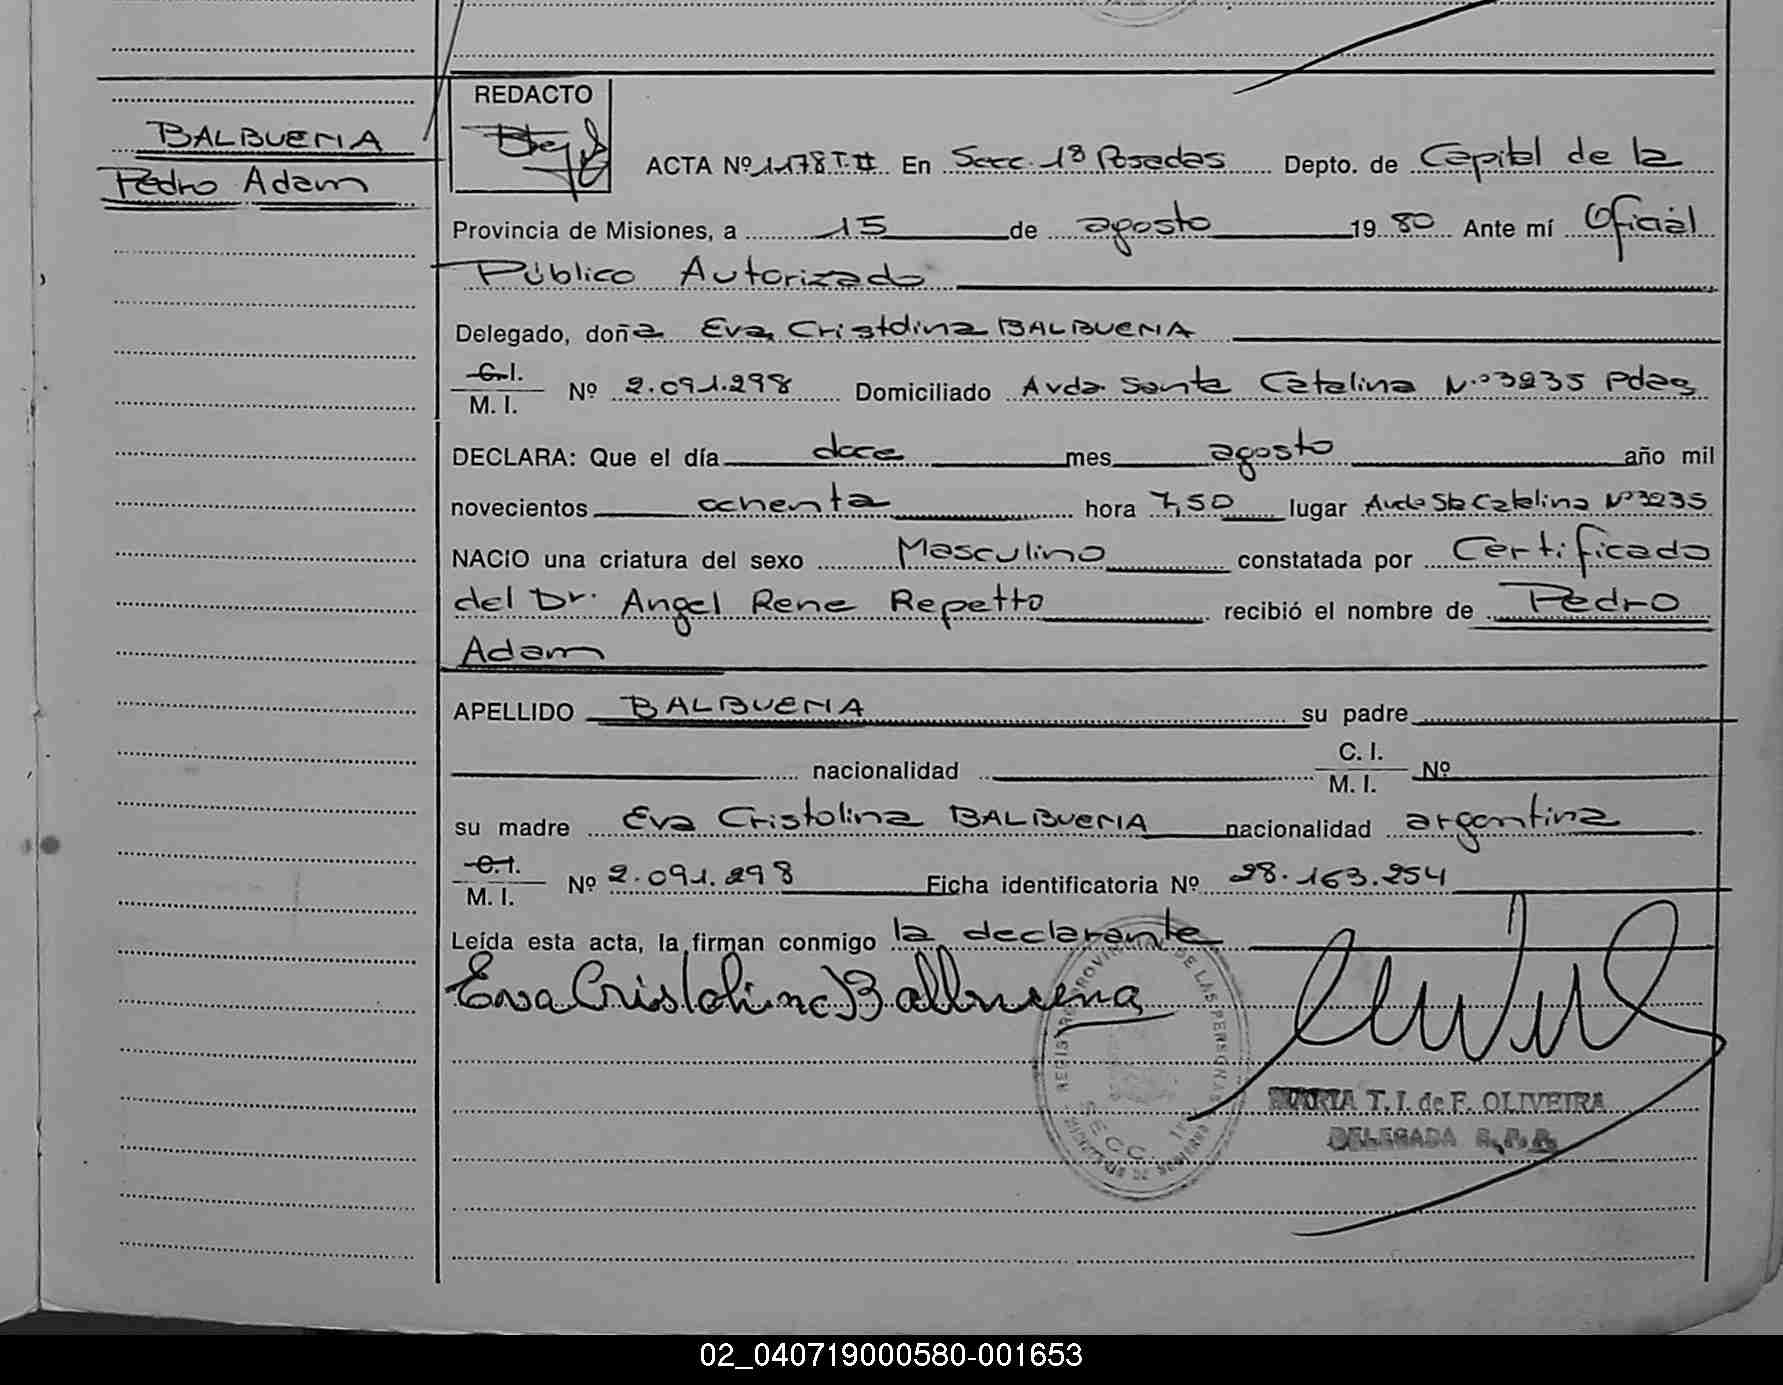 BALBUENA
Pedro Adam
REDACTO
ACTA Nº 1178 T.II En Secc. 1ª Posadas Depto. de Capital de la
Provincia de Misiones, a 15 de agosto 1980 Ante mí Oficial
Público Autorizado
Delegado, doña Eva Cristolina BALBUENA
C.I.
M. I. Nº 2.091.298 Domiciliado Avda. Santa Catalina N.º 3235 Pdas
DECLARA: Que el día doce mes agosto año mil
novecientos ochenta hora 7,50 lugar Avda Sta Catalina Nº 3235
NACIO una criatura del sexo Masculino constatada por Certificado
del Dr. Angel Rene Repetto recibió el nombre de Pedro
Adam
APELLIDO BALBUENA su padre
nacionalidad C. I.
M. I. Nº
su madre Eva Cristolina BALBUENA nacionalidad argentina
C.I.
M. I. Nº 2.091.298 Ficha identificatoria Nº 28.163.254
Leída esta acta, la firman conmigo la declarante
Eva Cristolina Balbuena
REGISTRO PROVINCIAL DE LAS PERSONAS
SECC. 1ª
MARIA T. I. de F. OLIVEIRA
DELEGADA R.P.P.
02_040719000580-001653